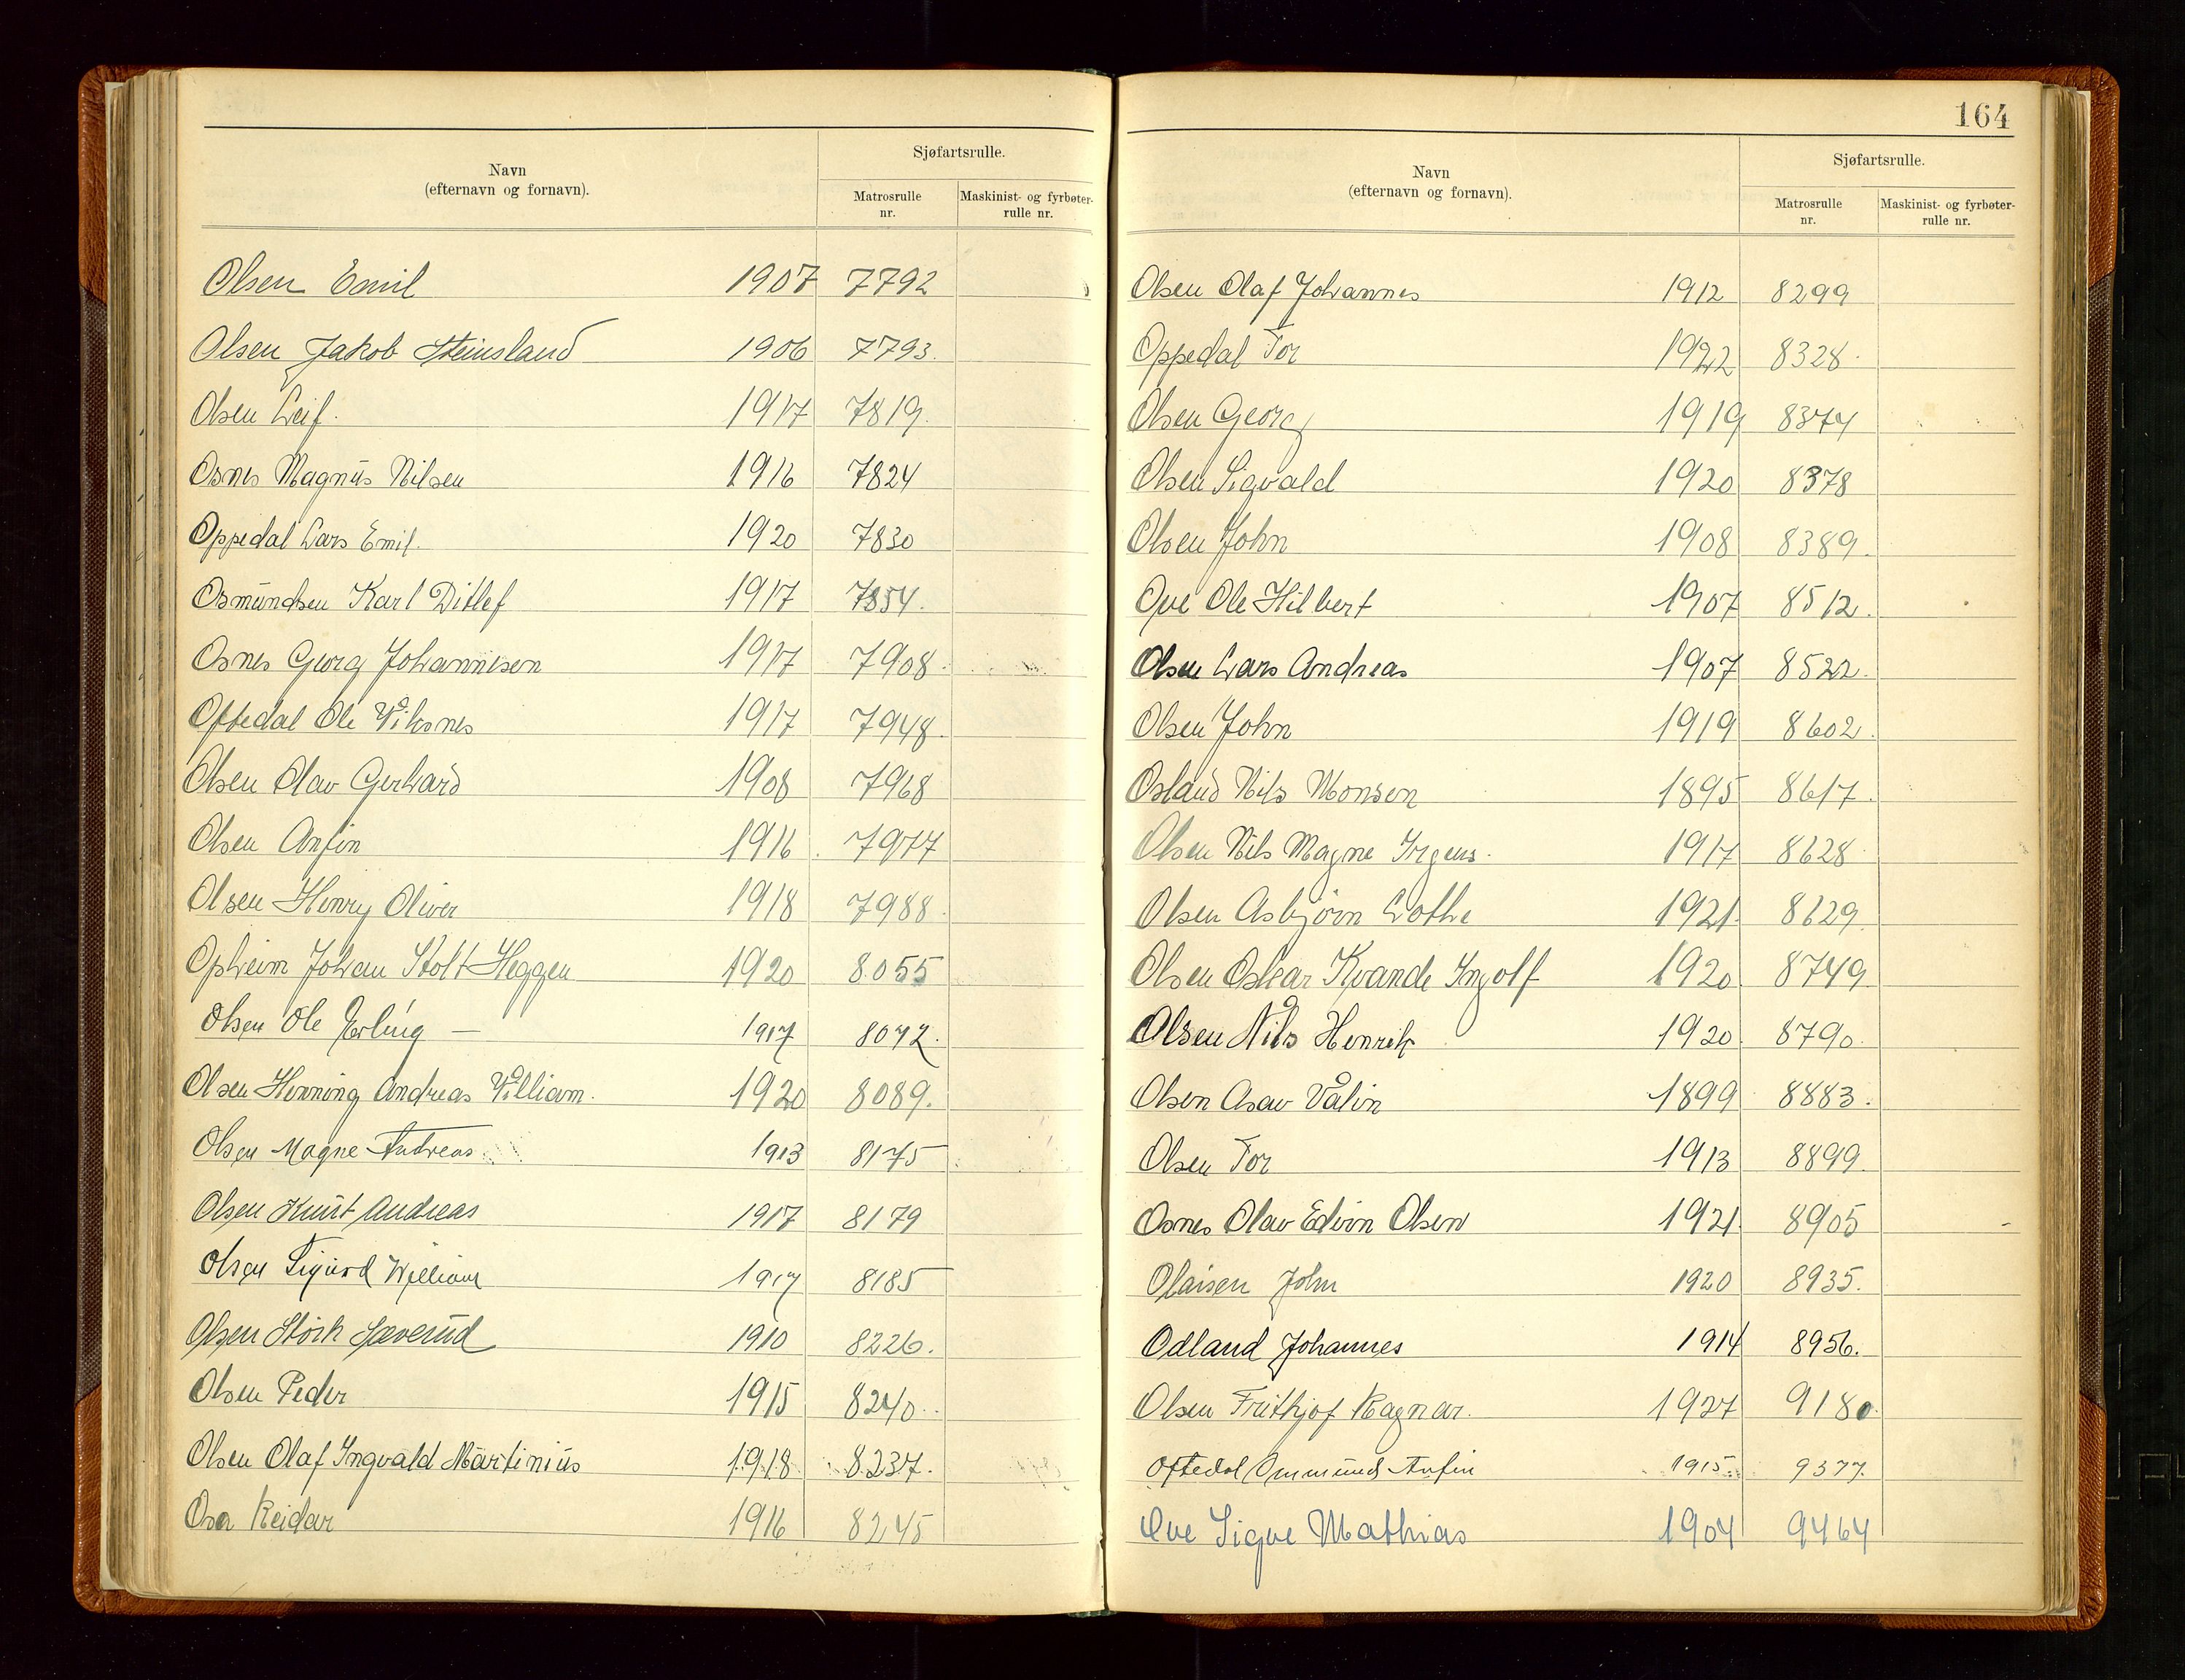 Navn
(efternavn og fornavn).
Sjøfartsrulle.
Matrosrulle
nr.
Maskinist- og fyrbøter-
rulle nr.
Olsen Emil 1907 7792
Olsen Jakob Steinsland 1906 7793.
Olsen Leif. 1917 7819.
Osnes Magnus Nilsen 1916 7824
Oppedal Lars Emil. 1920 7830
Osmundsen Karl Ditlef 1917 7854.
Osnes Georg Johannesen 1917 7908.
Oftedal Ole Viksnes 1917 7948.
Olsen Olav Gerhard 1908 7968
Olsen Anfin 1916 7977
Olsen Henry Oliver 1918 7988.
Opheim Johan Stolt-Heggen 1920 8055
Olsen Ole Erling — 1917 8072.
Olsen Henning Andreas William. 1920 8089.
Olsen Magne Andreas 1913 8175
Olsen Knut Andreas 1917 8179
Olsen Sigurd William 1917 8185
Olsen Störk Sæverud 1910 8226.
Olsen Peder 1915 8240.
Olsen Olaf Ingvald Martinius 1918 8237.
Osa Reidar 1916 8245
164
Navn
(efternavn og fornavn).
Sjøfartsrulle.
Matrosrulle
nr.
Maskinist- og fyrbøter-
rulle nr.
Olsen Olaf Johannes 1912 8299
Oppedal Tor 1922 8328.
Olsen Georg 1919 8374
Olsen Sigvald 1920 8378
Olsen John 1908 8389.
Ove Ole Hilbert 1907 8512.
Olsen Lars Andreas 1907 8522.
Olsen John 1919 8602.
Osland Nils Monsen 1895 8617.
Olsen Nils Magne Irgens. 1917 8628
Olsen Asbjörn Lothe 1921 8629
Olsen Oskar Kvande Ingolf 1920 8749
Olsen Nils Henrik 1920 8790.
Olsen Asav Valin 1899 8883.
Olsen Tor 1913 8899
Osnes Olav Edvin Olsen 1921 8905
Olaisen John 1920 8935.
Odland Johannes 1914 8956.
Olsen Frithjof Ragnar. 1927 9180.
Oftedal Ommund Anfin 1915 9377.
Ove Sigve Mathias 1904 9464